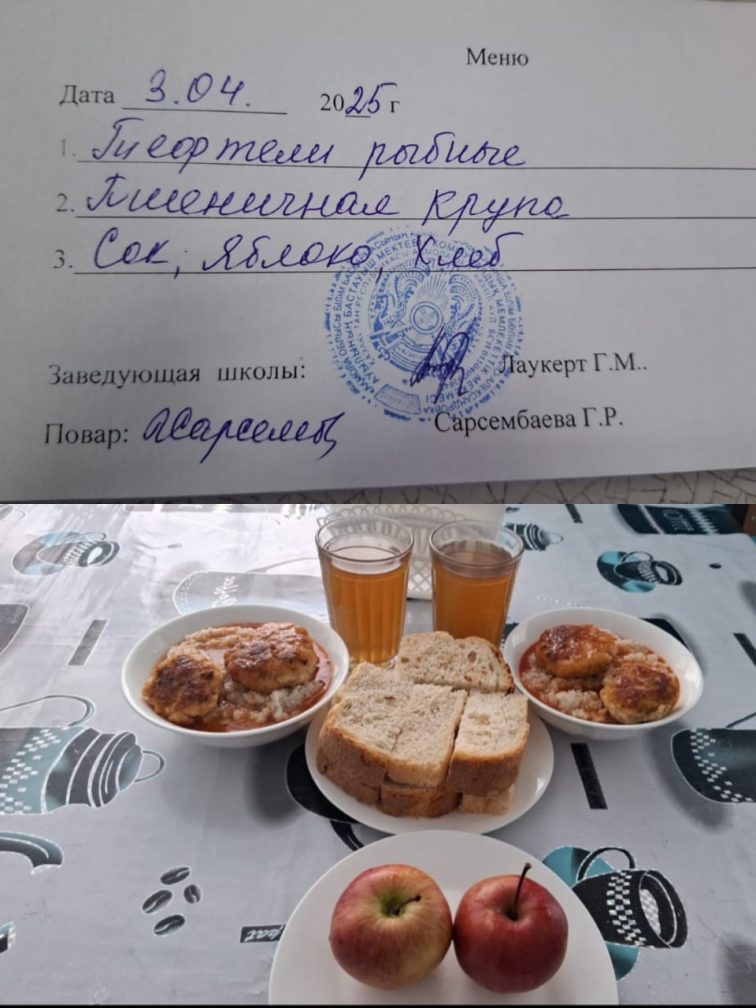 Меню
Дата 3.04. 2025 г
1. Тиефтели рыбные
2. Пшеничная крупа
3. Сок, Яблоко, Хлеб
Заведующая школы: Лаукерт Г.М..
Повар: Сарсембаева Г.Р.